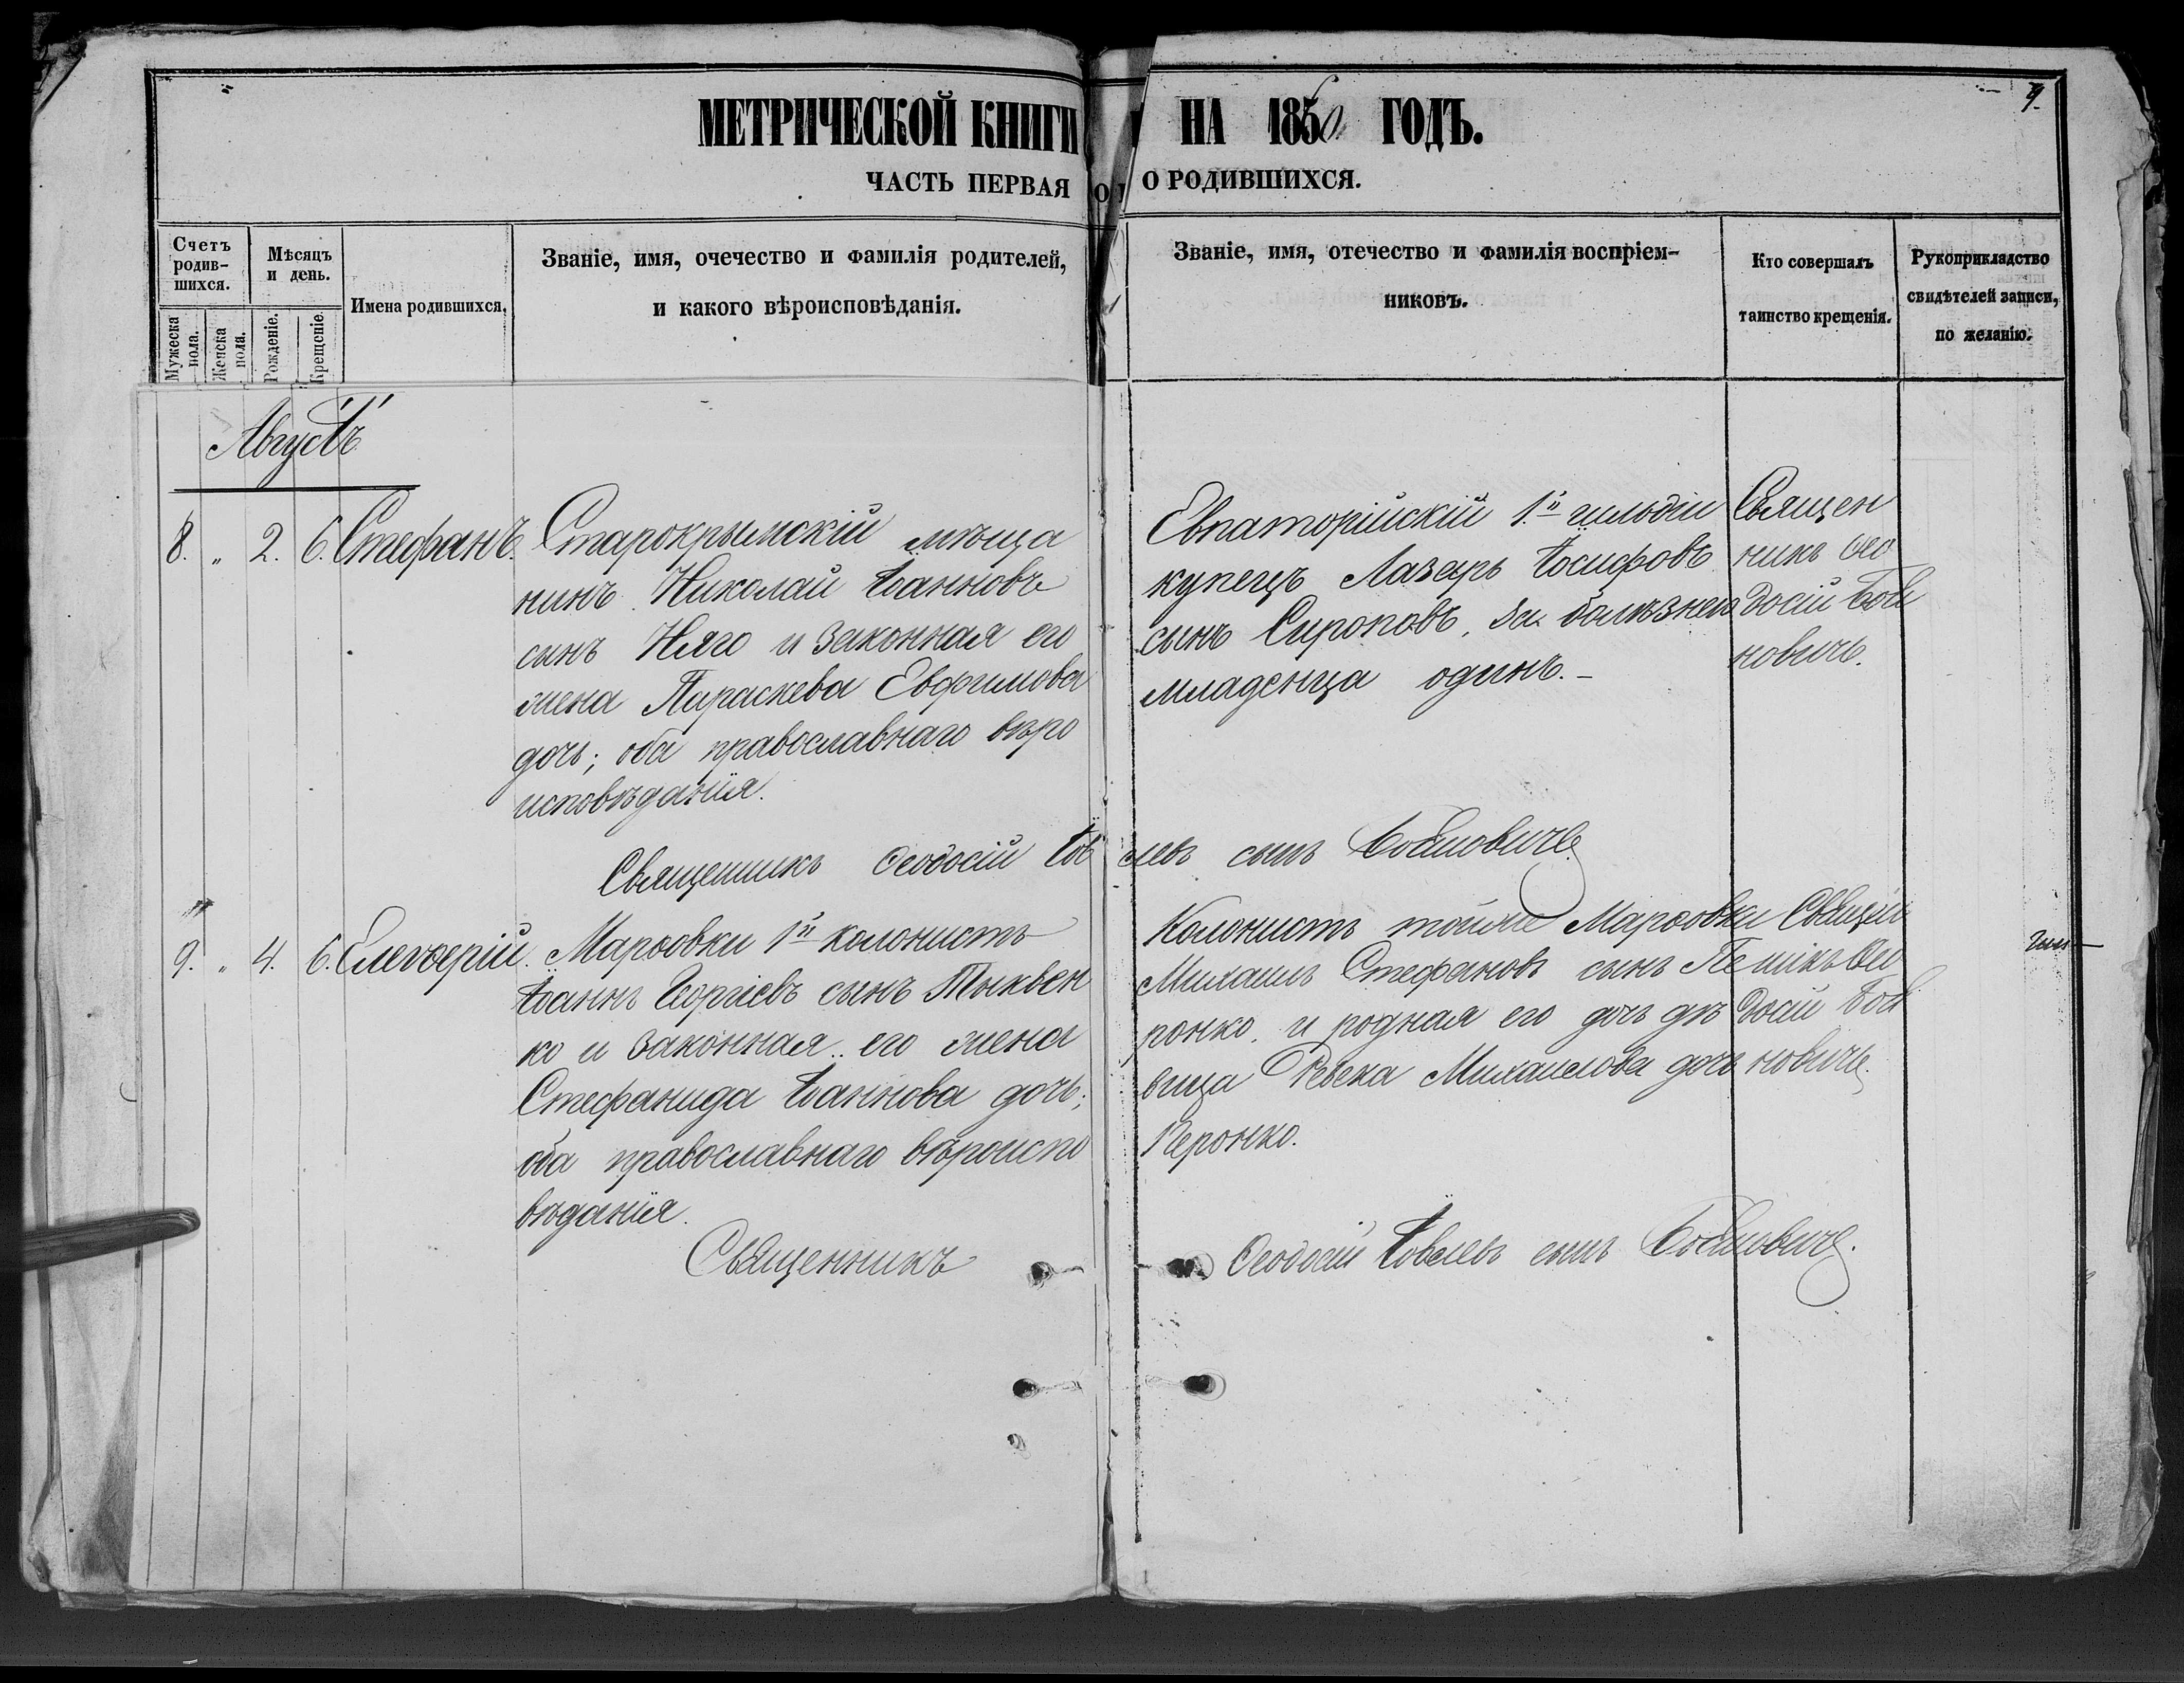 9.
МЕТРИЧЕСКОЙ КНИГИ НА 1860 ГОДЪ.
ЧАСТЬ ПЕРВАЯ О РОДИВШИХСЯ.
Счетъ родив-
шихся.
Мужеска пола.
Женска пола.
Мѣсяцъ
и день.
Рожденіе.
Крещеніе.
Имена родившихся.
Званіе, имя, очечество и фамилія родителей,
и какого вѣроисповѣданія.
Званіе, имя, отечество и фамилія воспріем-
никовъ.
Кто совершалъ
таинство крещенія.
Рукоприкладство
свидѣтелей записи,
по желанію.
Августъ
8. „ 2. 6. Стефанъ.
Старокрымскій мѣща
нинъ Николай Іоанновъ
сынъ Няго и законная его
жена Параскева Евфимова
дочь; оба православнаго вѣро
исповѣданія.
Евпаторійскій 1й гильдіи
купецъ Лазарь Іосифовъ
сынъ Сироповъ, за болѣзнею
младенца одинъ.
Священ
никъ Ѳео
досій Бой
новичъ.
Священникъ Ѳеодосій Іовлевъ сынъ
9. „ 4. 6. Елевѳерій.
Марѳовки 1й колонистъ
Іоаннъ Георгіевъ сынъ Тыквен
ко и законная его жена
Стефанида Іоаннова дочь;
оба православнаго вѣроиспо
вѣданія.
Колонистъ тойже Марѳовки
Михаилъ Стефановъ сынъ Пе
ронко, и родная его дочь дѣ
вица Ревека Михаилова дочь
Перонко.
Священ
никъ Ѳео
досій Бой
новичъ.
Священникъ Ѳеодосій Іовлевъ сынъ